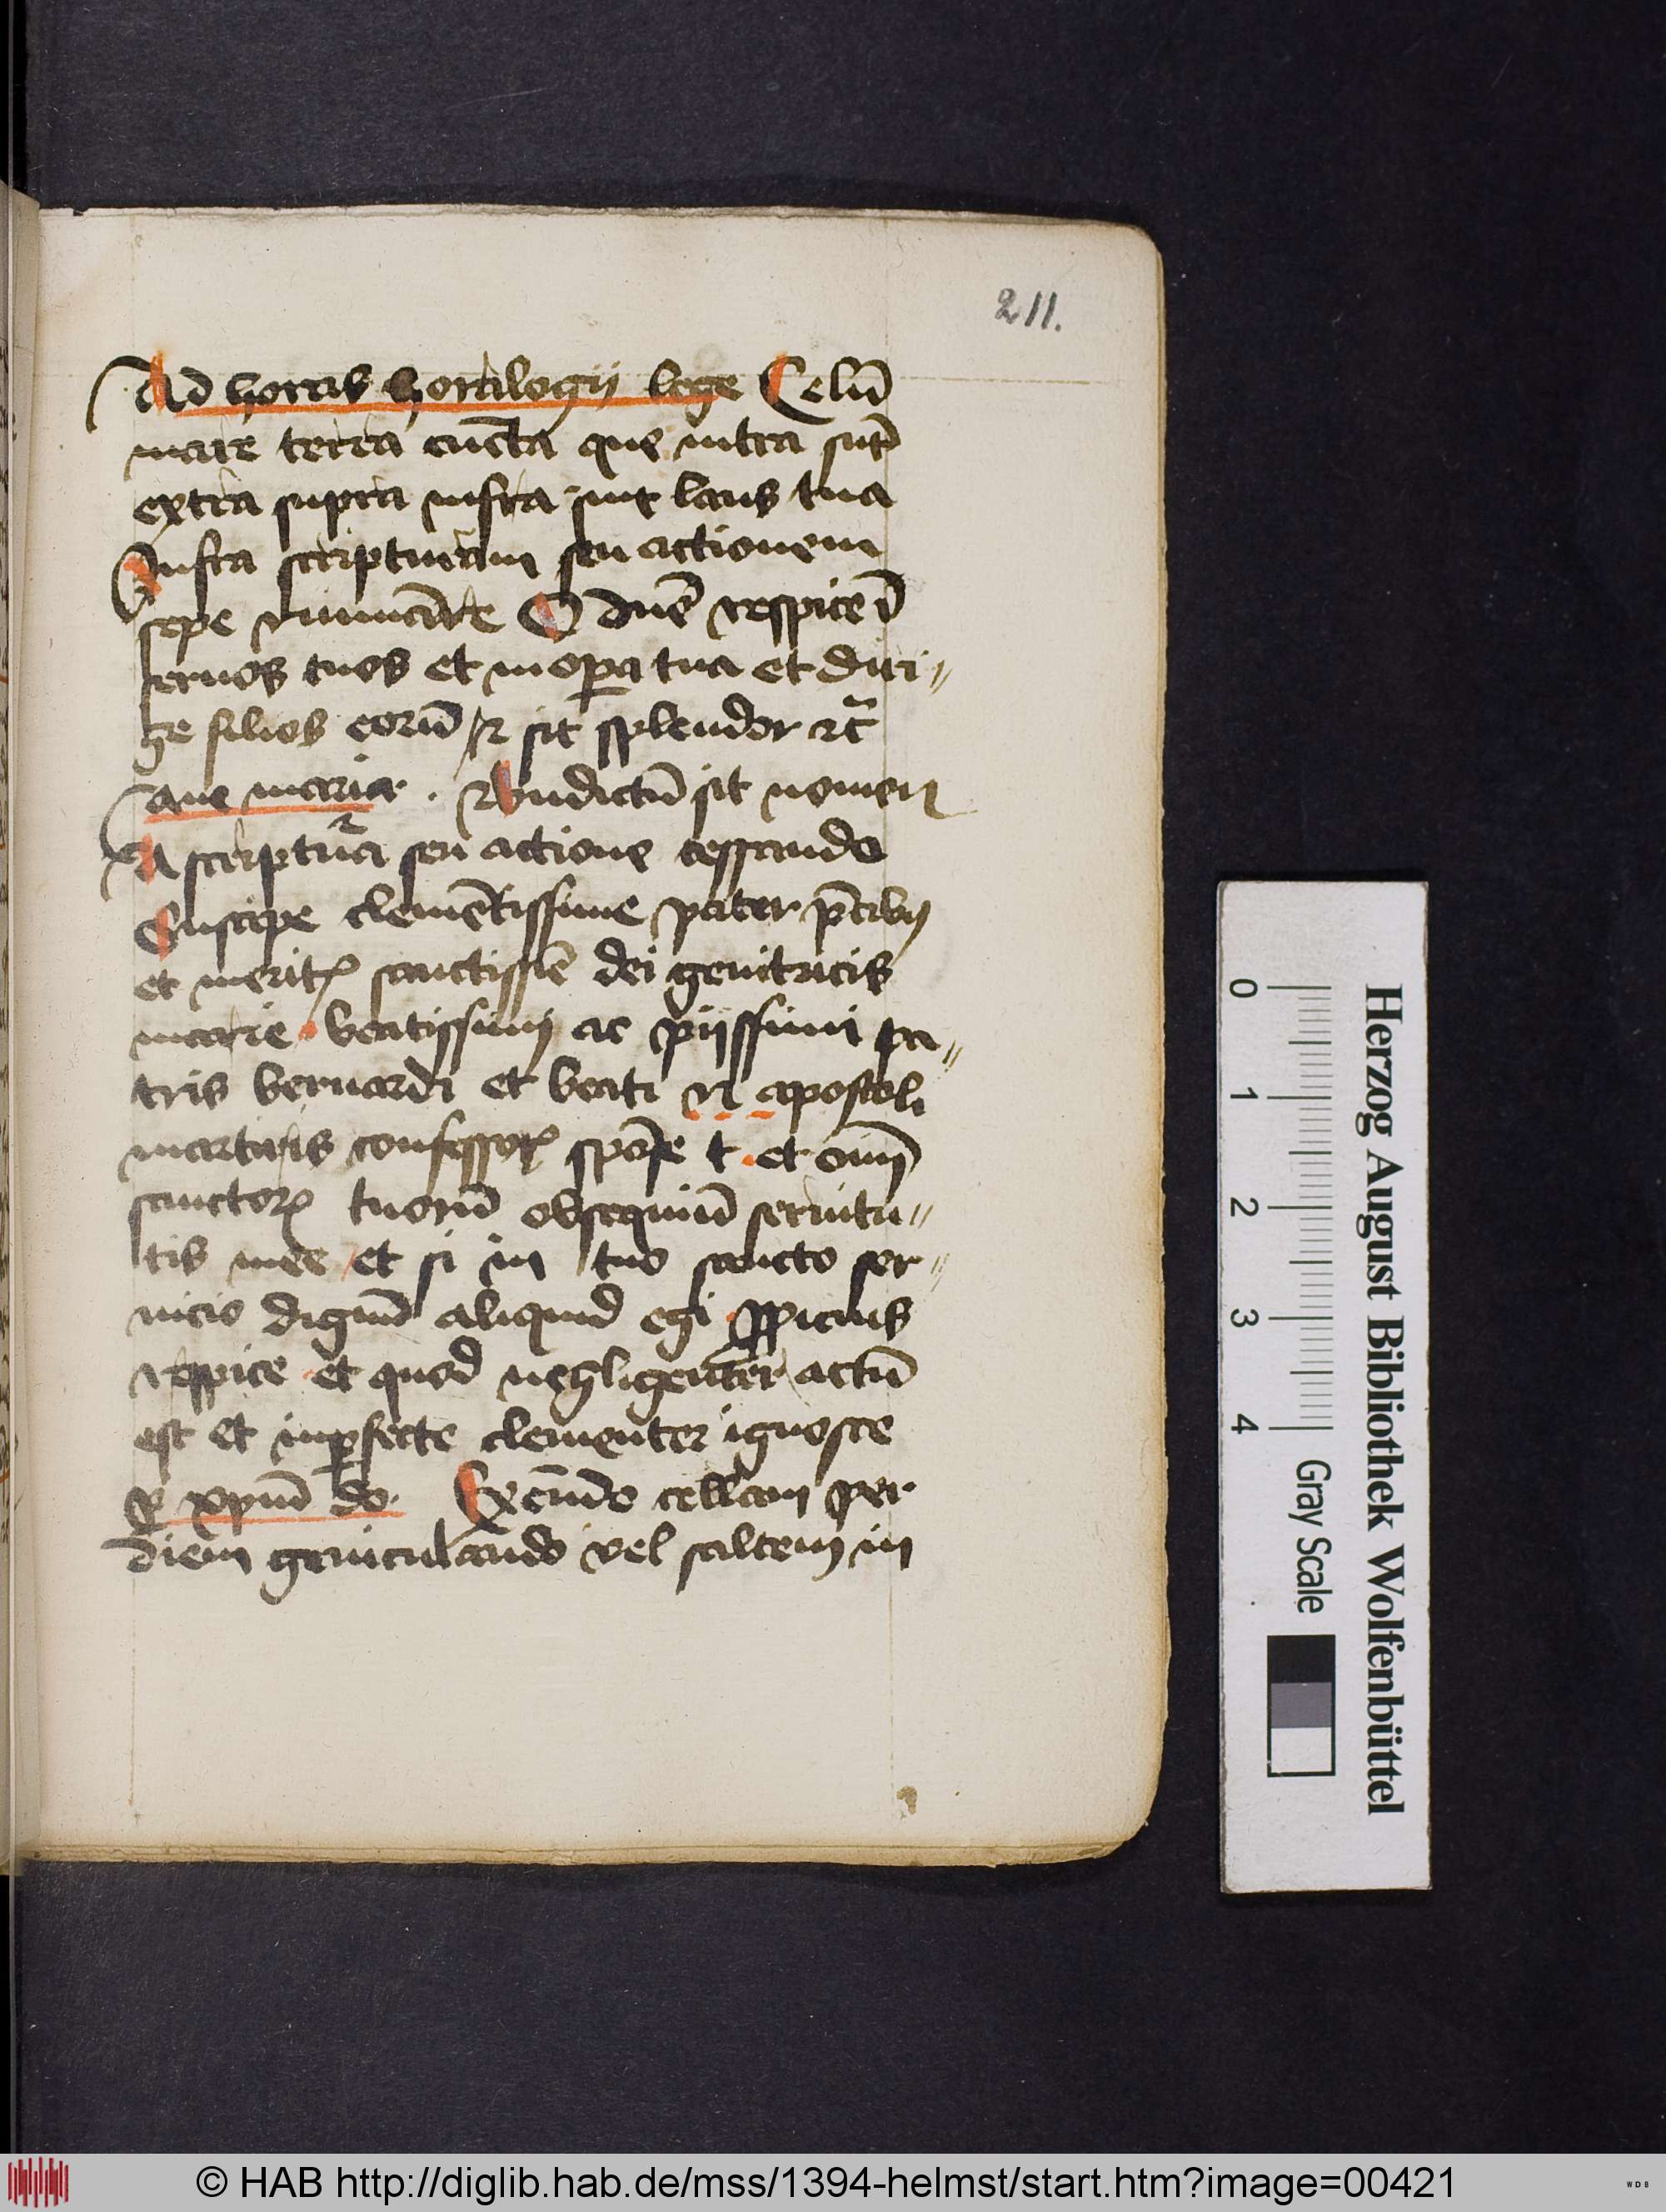 211.
Ad horas horalogij lege Celū
mare terra cūcta que intra sūt
extra supra infra sint laus tua
Infra scripturam seu actionem
sepe O dn̄e respice ī
seruos tuos et in opa tua et diri〃
ge filios eorū & sit splendor
aue maria . & bn̄dictū sit nomen
A scriptura seu actione cessando
Suscipe clemētissime pater p̄cibus
et meritꝭ sanctissīe dei genitricis
marie beatissimi ac pijssimi pa〃
tris bernardi et beati N apostoli
martiris confessorꝭ spōse t et oīm
sanctorꝝ tuorū obsequiū seruitu〃
tis mee et si in tuo sancto ser〃
uicio dignū aliquid egi ꝓpicius
respice et quod neglīgenter actū
est et inꝑfecte clementer ignosce
ꝑ xpm̄ do. Exeūdo cellam per
diem geniculando vel saltem in
Herzog August Bibliothek Wolfenbüttel
0 1 2 3 4 Gray Scale
© HAB http://diglib.hab.de/mss/1394-helmst/start.htm?image=00421
WDB